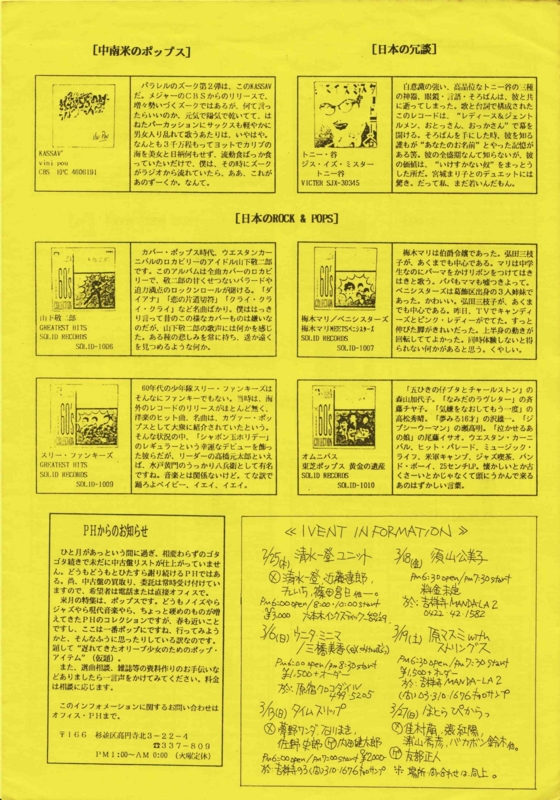 [中南米のポップス]
[日本の冗談]
KASSAV'
vini pou
CBS EPC 4608191
パラレルのズーク第2弾は、このKASSAV
だ。メジャーのCBSからのリリースで、
増々勢いづくズークではあるが、何て言っ
たらいいのか、元気で陽気で乾いてて、は
ねたパーカッションにサックスも軽やかに
男女入り乱れて歌うあたりは、いやはや。
なんとも3千万積もってヨットでカリブの
海を美女と日柄何もせず、
っていたいだけで、僕は、その時にズーク
がラジオから流れていたら、ああ、これが
あのずーくか。なんて。
トニー・谷
ジス・イズ・ミスター
トニー谷
VICTER SJX-30345
自意識の強い、高品位なトニー谷の三種
の神器、眼鏡・言語・そろばんは、彼と共
に逝ってしまった。歌と台詞で構成された
このレコードは、"レディース&ジェント
ルメン、おとっさん、おっかさん"で幕を
開ける。そろばんを手にした時、彼を知る
誰もが"あなたのお名前"とやった記憶が
ある筈。彼の全盛期なんて知らないが、彼
の価値は、"いけすかない奴"をまっとう
した所だ。宮城まり子とのデュエットには
驚き。だって私、まだ若いんだもん。
[日本のROCK & POPS]
山下敬二郎
GREATEST HITS
SOLID RECORDS
SOLID-1006
カバー・ポップス時代、ウエスタンカー
ニバルのロカビリーのアイドル山下敬二郎
です。このアルバムは全曲カバーのロカビ
リーで、敬二郎の甘くせつないバラードや
迫力満点のロックンロールが聴ける。「ダ
イアナ」「恋の片道切符」「クライ・クラ
イ・クライ」など名曲ばかり。僕ははっき
り言って昔のこの様なカバーものは嫌いな
のだが、山下敬二郎の歌声には何かを感じ
た。ある種の悲しみを常に持ち、遥か遠く
を見つめるような何か。
梅木マリ/ベニシスターズ
梅木マリMEETSベニシスターズ
SOLID RECORDS
SOLID-1007
梅木マリは伯爵令嬢であった。弘田三枝
子が、あくまでも中心である。マリは中学
生なのにパーマをかけリボンをつけてはき
はきと歌う。パパもママも嘘つきよって。
ベニシスターズは葛飾区出身の3人姉妹で
あった。かわいい。弘田三枝子が、あくま
でも中心である。昨日、TVでキャンディ
ーズとピンク・レディーがでてた。すっと
伸びた脚がきれいだった。上半身の動きが
回転しててよかった。同時体験しないと得
られない何かがあると思う。くやしい。
スリー・ファンキーズ
GREATEST HITS
SOLID RECORDS
SOLID-1009
60年代の少年隊スリー・ファンキーズは
そんなにファンキーでもない。当時は、海
外のレコードのリリースがほとんど無く、
洋楽のヒット曲、名曲は、カヴァー・ポッ
プスとして大衆に紹介されていたという。
そんな状況の中、「シャボン玉ホリデー」
のレギュラーという幸運なデビューを飾っ
た彼らだが、リーダーの高橋元太郎といえ
ば、水戸黄門のうっかり八兵衛として有名
ですね。音楽とは関係ないけど。てな訳で
踊ろよベイビー、イエイ、イエイ。
オムニバス
東芝ポップス 黄金の遺産
SOLID RECORDS
SOLID-1010
「五ひきの仔ブタとチャールストン」の
森山加代子。「なみだのラヴレター」の斉
藤チヤ子。「気嫌をなおしてもう一度」の
高松秀晴。「夢みる16才」の沢雄一。「ジ
プシーウーマン」の瀬高明。「泣かせるあ
の娘」の尾藤イサオ。ウエスタン・カーニ
バル、ヒット・パレード、ミュージック・
ライフ、米軍キャンプ、ジャズ喫茶、バン
ド・ボーイ、25センチLP。懐かしいとか古
くさーいとかじゃなくて頭にうかんで来る
あのはずかしい言葉。
PHからのお知らせ
ひと月があっという間に過ぎ、相変わらずのゴタ
ゴタ続きで未だに中古盤リストが仕上がっていませ
ん。どうもどうもとひたすら謝り続けるPHではあ
る。尚、中古盤の買取り、委託は常時受け付けてい
ますので、希望者は電話または直接オフィスで。
来月の特集は、ポップスです。どうもノイズやら
ジャズやら現代音楽やら、ちょっと硬めのものが増え
てきたPHのコレクションですが、春も近いことで
すし、ここは一番ポップにですね、行ってみようか
と、そんなふうに思ったりしている訳なのです。
題して"遅れてきたオリーブ少女のためのポップ・
アイテム"(仮題)。
また、選曲相談、雑誌等の資料作りのお手伝いな
どありましたら一言声をかけてみてください。料金
は相談に応じます。
このインフォメーションに関するお問い合わせは
オフィス・PHまで。
〒166 杉並区高円寺北3-22-4
☎337-809
PM1:00~AM0:00 (火曜定休)
≪ IVENT INFORMATION ≫
2/25(木) 清水一登ユニット
Ⓧ 清水一登, 近藤達郎,
れいち, 篠田昌已 他一。
Pm6:00open/8:00・10:00start
¥3,000 六本木インクスティック
3/6(日) サーターミニマ
/三橋美香
Pm6:00open/pm8:30start
¥1,500+オーダー
於:原宿クロコダイル
499,5205
3/13(日) タイムスリップ
pm6:00open/pm7:00start ¥2000-
3/18(金) 須山公美子
Pm6:30open/Pm7:30start
料金未定
於:吉祥寺MANDA-LA2
0422 42 1582
3/19(土) 原マスミwith
ストリングス
Pm6:30open/Pm7:30start
¥1,500+オーダー
於:吉祥寺MANDA-LA2
3/27(日) ほとらぴからっ
清山
バカボン鈴木 他。
友部正人
於:場所・問合わせは同上。